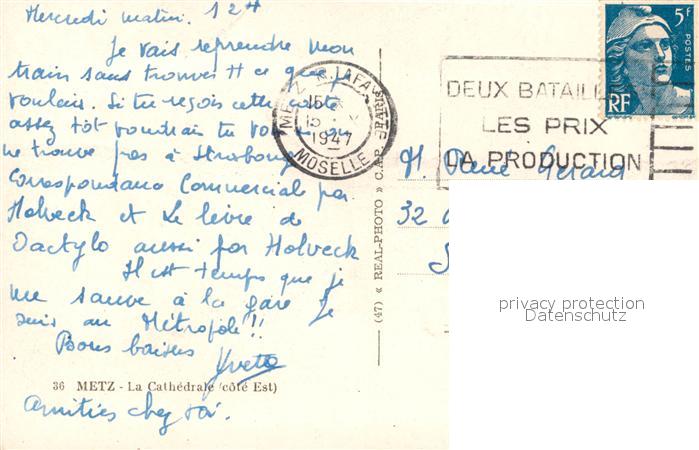 Mercredi matin. 12 H
Je vais reprendre mon
train sans trouver tt ce que je
voulais. Si tu reçois cette carte
assez tôt voudrais tu voir si on
ne trouve pas à Strasbourg
Correspondance Commerciale par
Holveck et Le livre de
Dactylo aussi par Holveck
Il est temps que je
me sauve à la gare Je
suis au Métropole!!
Bons baisers
Yvette
36 METZ - La Cathédrale (côté Est)
Amitiés chez toi.
METZ R.
15
15
1947
MOSELLE
DEUX BATAILLES
LES PRIX
LA PRODUCTION
5F
POSTES
RF
(47) « REAL-PHOTO » C.A.P.
M. René Gérard
32
privacy protection
Datenschutz